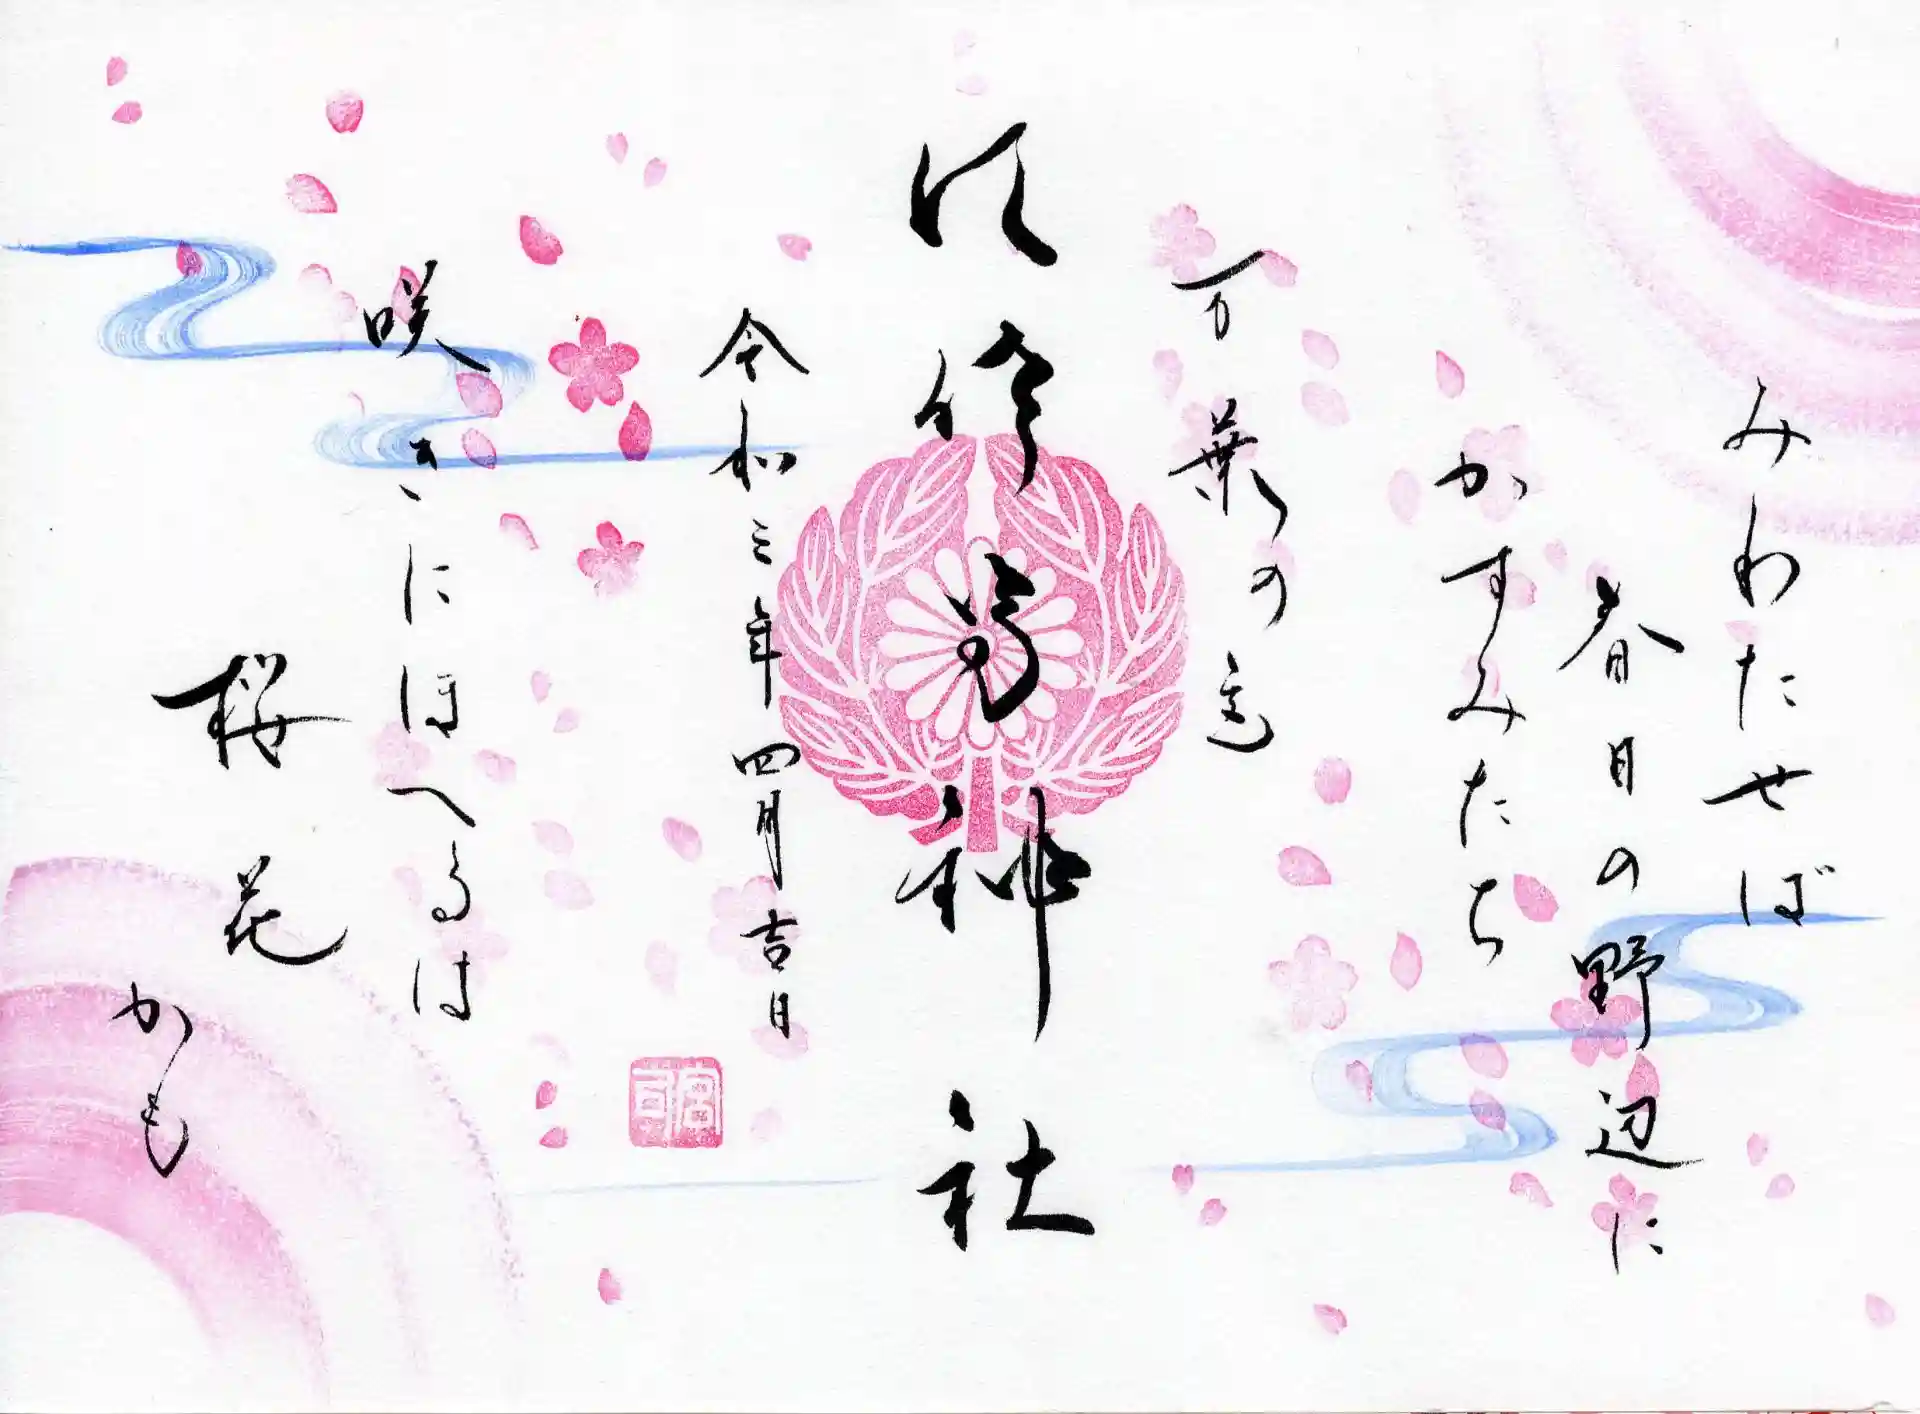 みわたせば
春日の野辺に
かすみたち
万葉の
神社
令和三年四月吉日
宮司
咲きにほへるは
桜花
かも